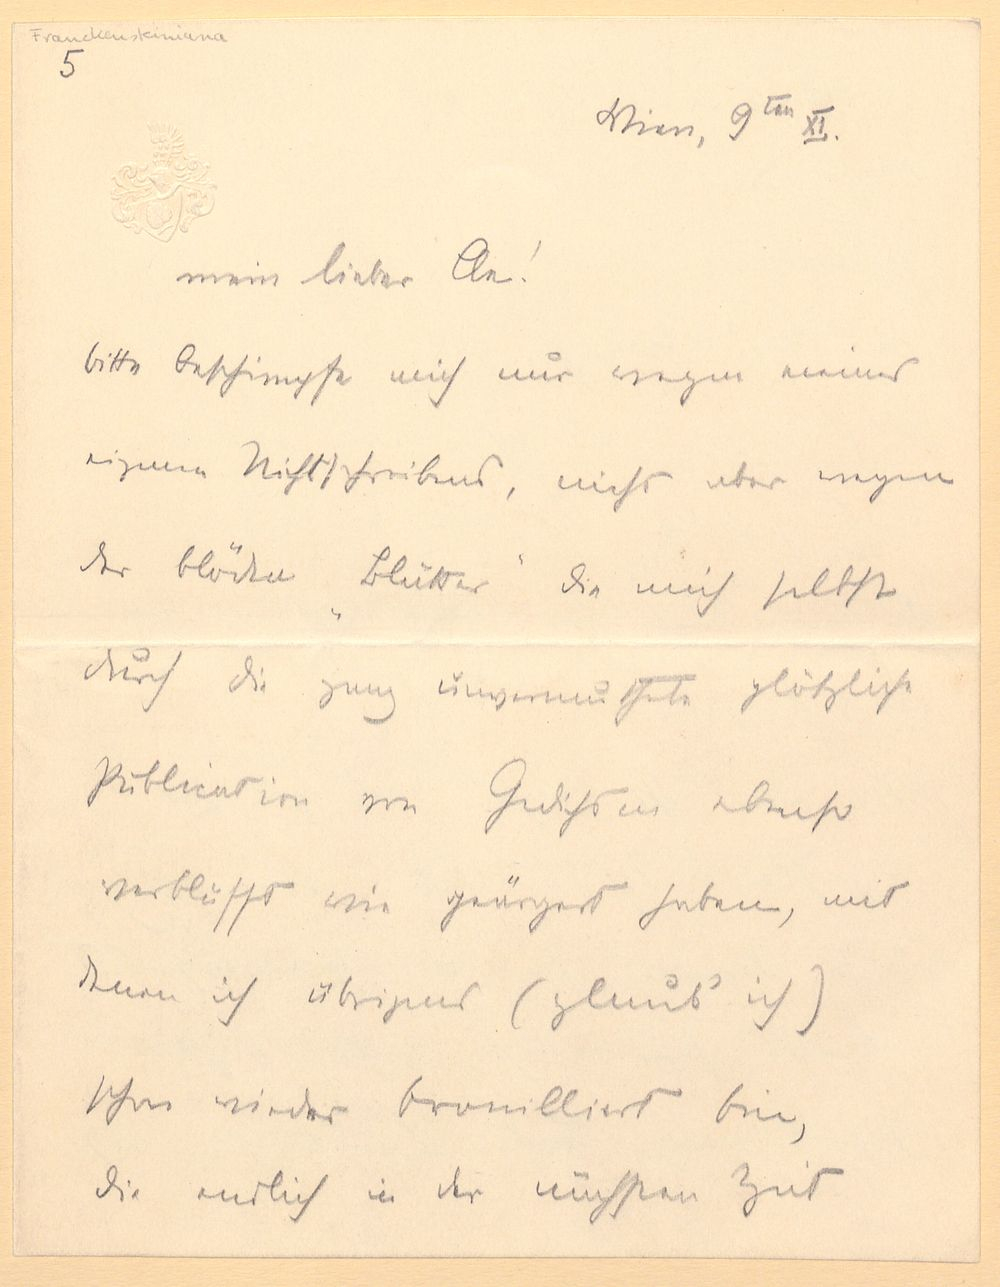 Franckensteiniana
5
Wien, 9ten XI.
mein lieber Cle!
bitte beschimpfe mich nur wegen meines
eigenen Nichtschreibens, nicht aber wegen
der blöden „Blätter“ die mich selbst
durch die ganz unvermuthete plötzliche
Publication von Gedichten ebenso
verblüfft wie geärgert haben, mit
denen ich übrigens (glaub' ich)
schon wieder brouilliert bin,
die endlich in der nächsten Zeit